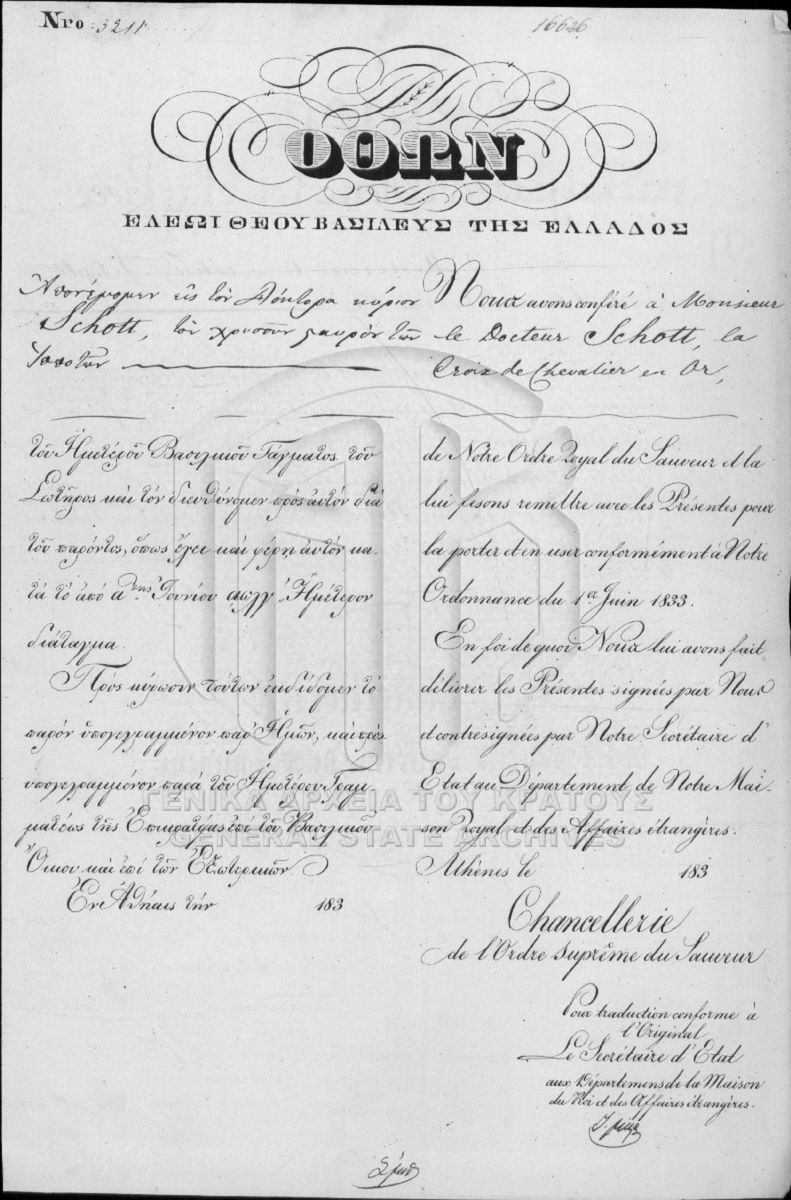 Nro 3211
16626
ΟΘΩΝ
ΕΛΕΩΙ ΘΕΟΥ ΒΑΣΙΛΕΥΣ ΤΗΣ ΕΛΛΑΔΟΣ
Ἀπονέμομεν εἰς τὸν Δόκτορα κύριον
Schott, τὸν χρυσοῦν σαυρὸν τῶν
Ἱπποτῶν
τοῦ Ἡμετέρου Βασιλικοῦ Τάγματος τοῦ
Σωτῆρος καὶ τὸν διευθύνομεν πρὸς αὐτὸν διὰ
τοῦ παρόντος, ὅπως ἔχει καὶ φέρῃ αὐτὸν κα-
τὰ τὸ ἀπὸ α της Ἰουνίου αωλγ Ἡμέτερον
διάταγμα.
Πρὸς κύρωσιν τούτων ἐκδίδομεν τὸ
παρὸν ὑπογεγραμμένον παρ' Ἡμῶν, καὶ προσ
υπογεγραμμένον παρὰ τοῦ Ἡμετέρου Γραμ-
ματέως τῆς Ἐπικρατείας ἐπὶ τοῦ Βασιλικοῦ
Οἴκου καὶ ἐπὶ τῶν Ἐξωτερικῶν.
Ἐν Ἀθήναις τὴν 183
Nous avons conféré à Monsieur
le Docteur Schott, la
Croix de Chevalier en Or,
de Notre Ordre Royal du Sauveur et la
lui fesons remettre avec les Présentes pour
la porter et en user conformément à Notre
Ordonnance du 1er Juin 1833.
En foi de quoi Nous lui avons fait
délivrer les Présentes signées par Nous
et contresignées par Notre Secrétaire d'
Etat au Département de Notre Mai-
son Royal et des Affaires étrangères.
Athènes le 183
Chancellerie
de l'Ordre suprême du Sauveur
Pour traduction conforme à
l'Original
Le Secrétaire d'Etat
aux Départemens de la Maison
du Roi et des Affaires étrangères.
ΓΕΝΙΚΑ ΑΡΧΕΙΑ ΤΟΥ ΚΡΑΤΟΥΣ
GENERAL STATE ARCHIVES